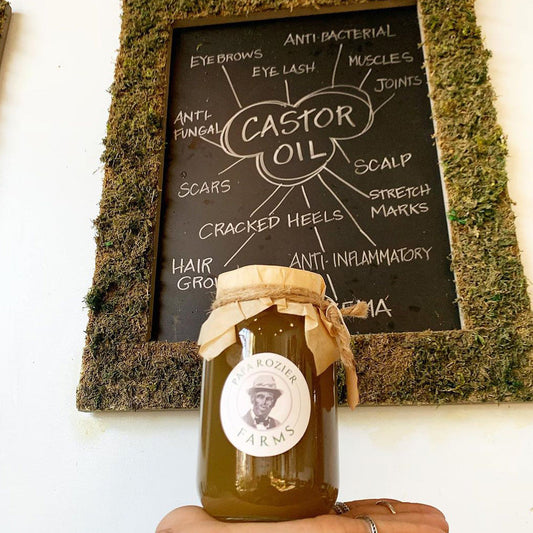 ANTI-BACTERIAL
EYEBROWS
MUSCLES
EYE LASH
JOINTS
ANTI
FUNGAL
CASTOR
OIL
SCALP
SCARS
STRETCH
MARKS
CRACKED HEELS
HAIR
GRO
ANTI-INFLAMMATORY
EMA
PAPA ROZIER
FARMS